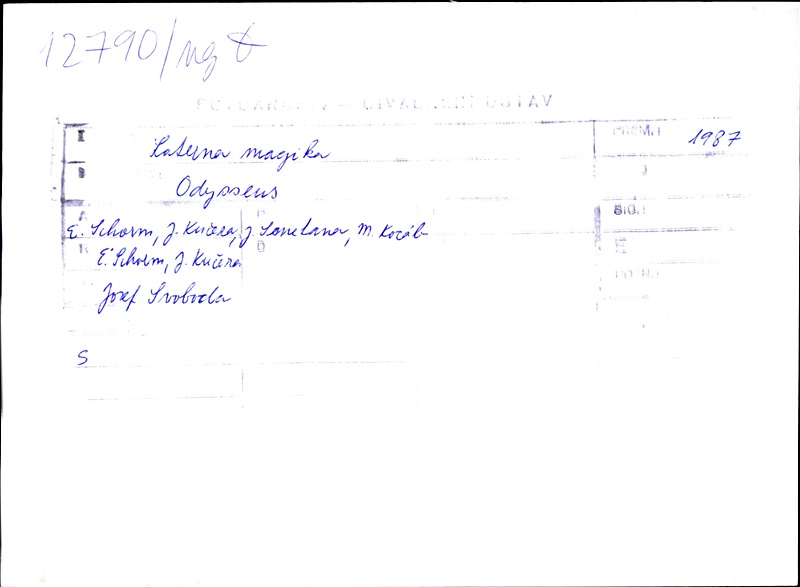 12790/ng
FOTOARCHIV — DIVADELNÍ ÚSTAV
PREM.: 1987
Laterna magika
Odysseus
SIG.:
E. Schorm, J. Kučera, J. Smetana, M. Kocáb
E. Schorm, J. Kučera
Josef Svoboda
S